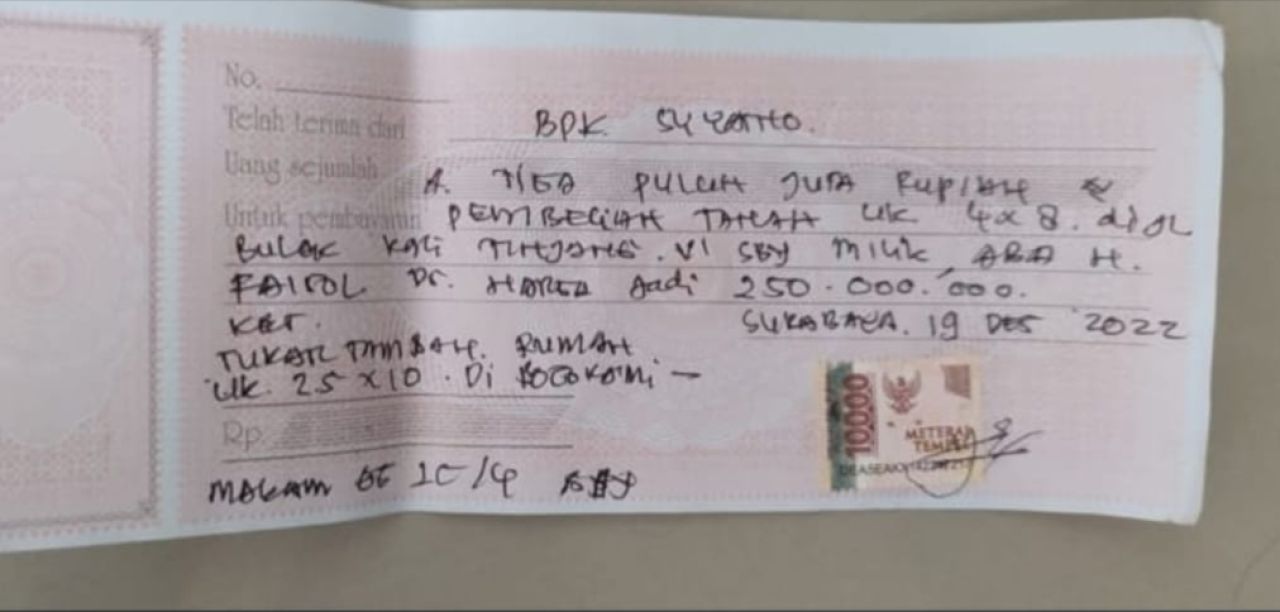 No.
Telah terima dari BPK. SUYANTO.
Uang sejumlah A. TIGA PULUH JUTA RUPIAH
Untuk pembayaran PEMBELIAN TANAH UK 4x8. di JL
BULAK KALI TINJANG. VI SBY MILIK ABA H.
FAIROL Dr. HARGA Jadi 250.000.000.
KET. SURABAYA. 19 DES 2022
TUKAR TAMBAH. RUMAH
UK. 25 X10. Di
Rp.
MAKAM
10000
METERAI
TEMPEL